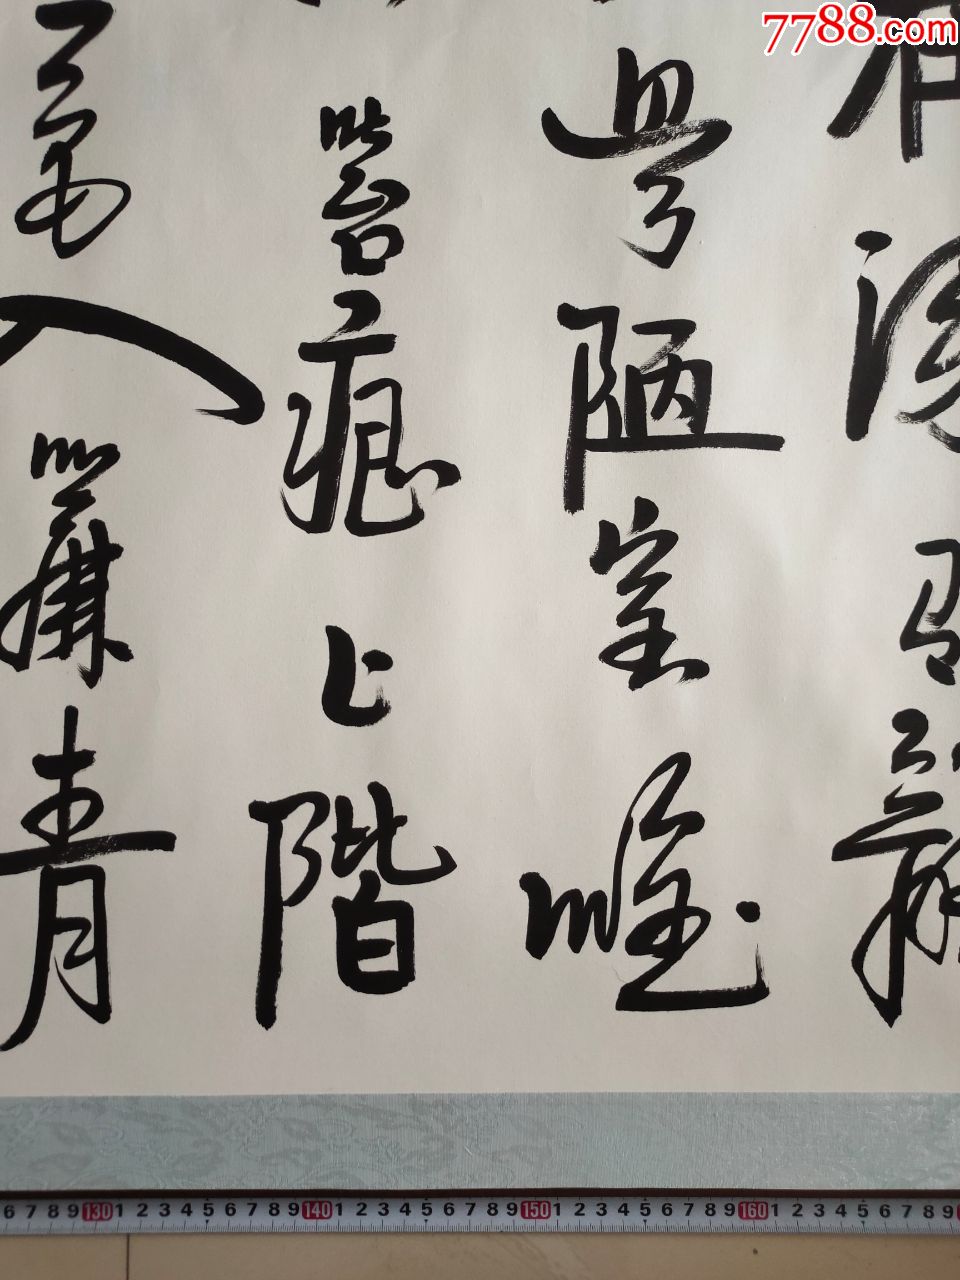 7788.com
深
龍
是陋室唯
苔痕上階
色入簾青
6 7 8 9 130 1 2 3 4 5 6 7 8 9 140 1 2 3 4 5 6 7 8 9 150 1 2 3 4 5 6 7 8 9 160 1 2 3 4 5 6 7 8 9